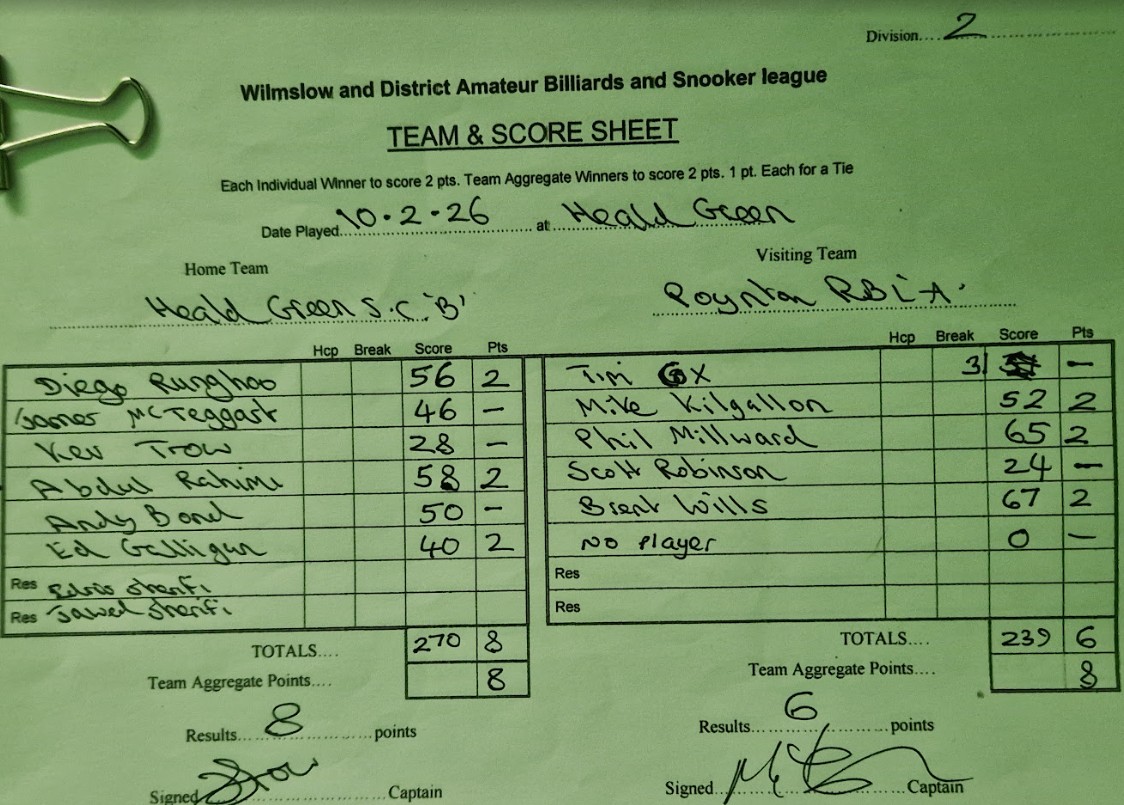 Division.... 2
Wilmslow and District Amateur Billiards and Snooker league
TEAM & SCORE SHEET
Each Individual Winner to score 2 pts. Team Aggregate Winners to score 2 pts. 1 pt. Each for a Tie
Date Played 10.2.26 at Heald Green
Home Team Visiting Team
Heald Green S.C. 'B' Poynton RBL 'A'
Hcp Break Score Pts Hcp Break Score Pts
Diego Runghoo 56 2 Tim 31 -
James McTeggart 46 - Mike Kilgallon 52 2
Kev Trow 28 - Phil Millward 65 2
Abdul Rahimi 58 2 Scott Robinson 24 -
Andy Bond 50 - Brent Wills 67 2
Ed Galligan 40 2 No Player 0 -
Res Sharifi Res
Res Jawed Sharifi Res
TOTALS.... 270 8 TOTALS.... 239 6
Team Aggregate Points.... 8 Team Aggregate Points.... 8
Results 8 points Results 6 points
Signed Captain Signed Captain